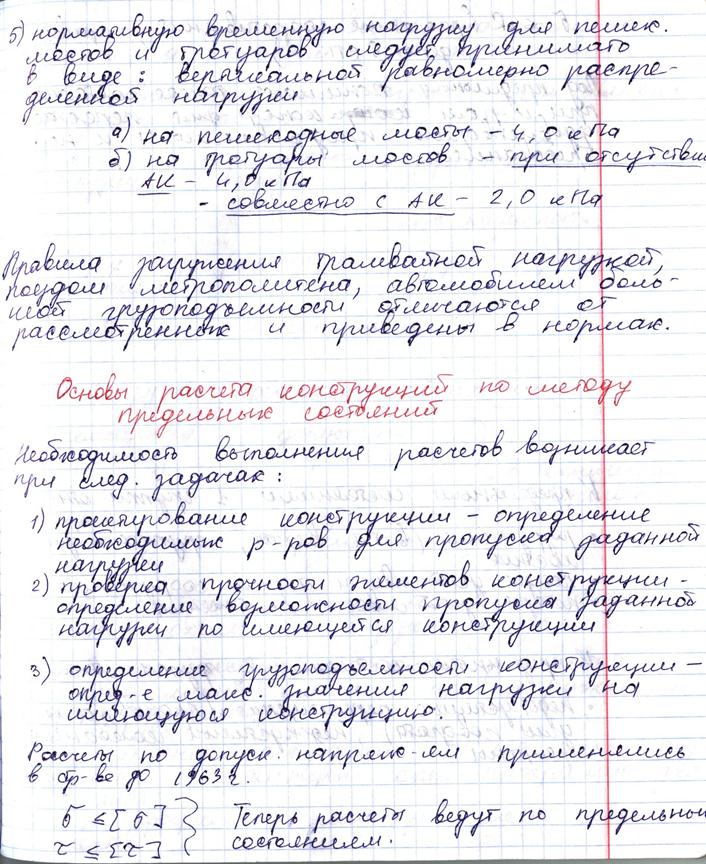 5) нормативную временную нагрузку для пешех.
мостов и тротуаров следует принимать
в виде: вертикальной равномерно распре-
деленной нагрузки
а) на пешеходные мосты - 4,0 кПа
б) на тротуары мостов - при отсутствии
АК - 4,0 кПа
- совместно с АК - 2,0 кПа
Правила загружения трамвайной нагрузкой,
поездом метрополитена, автомобилем боль-
шой грузоподъемности отличаются от
рассмотренных и приведены в нормах.
Основы расчета конструкций по методу
предельных состояний
Необходимость выполнения расчетов возникает
при след. задачах:
1) проектирование конструкции - определение
необходимых р-ров для пропуска заданной
нагрузки
2) проверка прочности элементов конструкции -
определение возможности пропуска заданной
нагрузки по имеющейся конструкции
3) определение грузоподъемности конструкции -
опред-е макс. значения нагрузки на
имеющуюся конструкцию.
Расчеты по допуск. напряж-ям применялись
в стр-ве до 1963 г.
σ ≤ [σ] } Теперь расчеты ведут по предельным
τ ≤ [τ] } состояниям.